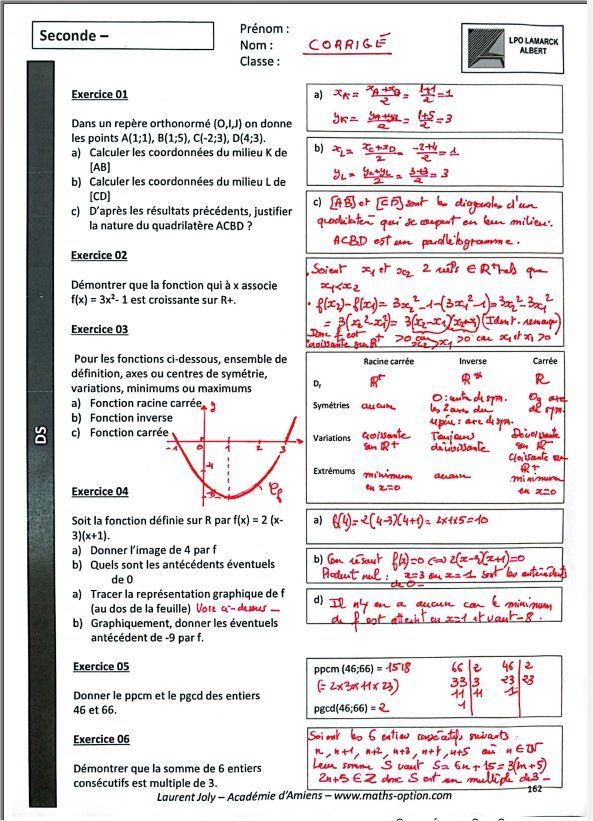 Seconde –
Prénom :
Nom : CORRIGÉ
Classe :
LPO LAMARCK
ALBERT
DS
Exercice 01
Dans un repère orthonormé (O,I,J) on donne
les points A(1;1), B(1;5), C(-2;3), D(4;3).
a) Calculer les coordonnées du milieu K de
[AB]
b) Calculer les coordonnées du milieu L de
[CD]
c) D'après les résultats précédents, justifier
la nature du quadrilatère ACBD ?
a) xK = (xA+xB)/2 = (1+1)/2 = 1
yK = (yA+yB)/2 = (1+5)/2 = 3
b) xL = (xC+xD)/2 = (-2+4)/2 = 1
yL = (yC+yD)/2 = (3+3)/2 = 3
c) [AB] et [CD] sont les diagonales d'un
quadrilatère qui se coupent en leur milieu.
ACBD est un parallélogramme.
Exercice 02
Démontrer que la fonction qui à x associe
f(x) = 3x²- 1 est croissante sur R+.
Soient x1 et x2 2 réels ∈ R+ tels que
x1<x2
• f(x2)-f(x1) = 3x2²-1-(3x1²-1) = 3x2²-3x1²
= 3(x2²-x1²) = 3(x2-x1)(x2+x1) (Ident. remarq)
Donc f est >0 car x2>x1 >0 car x1 et x2 >0
croissante sur R+
Exercice 03
Pour les fonctions ci-dessous, ensemble de
définition, axes ou centres de symétrie,
variations, minimums ou maximums
a) Fonction racine carrée
b) Fonction inverse
c) Fonction carrée
y
-1 0 1 2 3
-4
-8
Cf
Racine carrée Inverse Carrée
Df R+ R* R
Symétries aucun O : centre de sym. Oy axe
les 2 axes du de sym.
repère : axe de sym.
Variations Croissante Toujours Décroissante
sur R+ décroissante sur R-
Croissante sur
R+
Extrémums minimum aucun minimum
en x=0 en x=0
Exercice 04
Soit la fonction définie sur R par f(x) = 2 (x-
3)(x+1).
a) Donner l'image de 4 par f
b) Quels sont les antécédents éventuels
de 0
a) Tracer la représentation graphique de f
(au dos de la feuille) Voir ci-dessus
b) Graphiquement, donner les éventuels
antécédent de -9 par f.
a) f(4) = 2(4-3)(4+1) = 2x1x5 = 10
b) On résout f(x)=0 <=> 2(x-3)(x+1)=0
Produit nul : x=3 ou x=-1 sont les antécédents
de 0
d) Il n'y en a aucun car le minimum
de f est atteint en x=1 et vaut -8.
Exercice 05
Donner le ppcm et le pgcd des entiers
46 et 66.
ppcm (46;66) = 1518
(= 2x3x11x23)
pgcd(46;66) = 2
66 | 2 46 | 2
33 | 3 23 | 23
11 | 11 1
1
Exercice 06
Démontrer que la somme de 6 entiers
consécutifs est multiple de 3.
Soient les 6 entiers consécutifs suivants :
n, n+1, n+2, n+3, n+4, n+5 où n∈N
Leur somme S vaut S = 6n+15 = 3(2n+5)
2n+5 ∈ Z donc S est un multiple de 3
162
Laurent Joly – Académie d'Amiens – www.maths-option.com